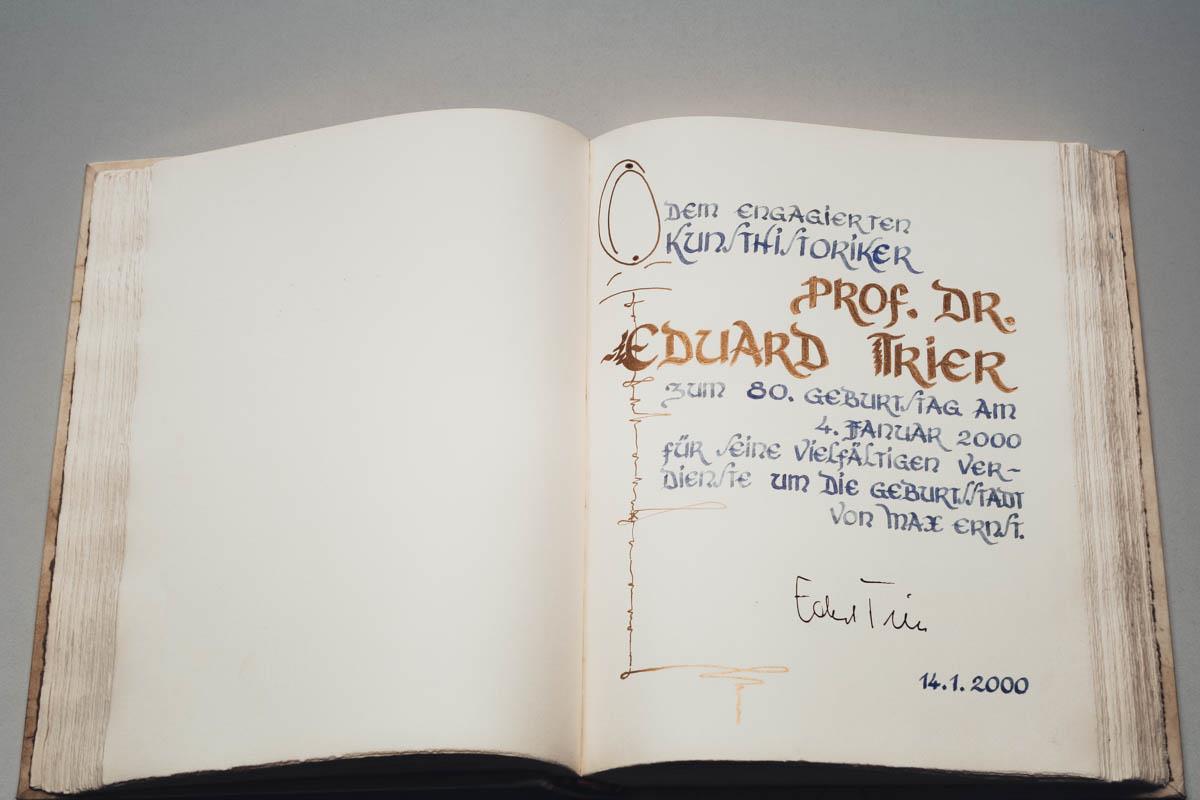 DEM ENGAGIERTEN
KUNSTHISTORIKER
PROF. DR.
EDUARD TRIER
ZUM 80. GEBURTSTAG AM
4. JANUAR 2000
FÜR SEINE VIELFÄLTIGEN VER-
DIENSTE UM DIE GEBURTSSTADT
VON MAX ERNST.
Eduard Trier
14.1.2000